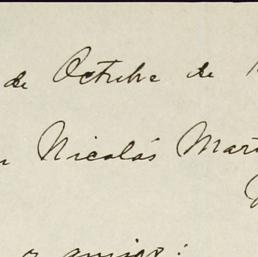 de Octubre de 1
n Nicolás Mart
y amigo: